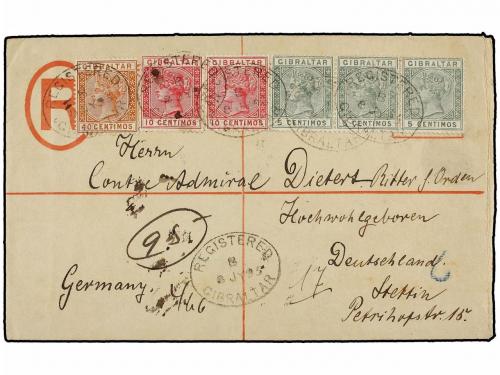 GIBRALTAR GIBRALTAR GIBRALTAR GIBRALTAR GIBRALTAR GIBRALTAR
R
40 CENTIMOS 10 CENTIMOS 10 CENTIMOS 5 CENTIMOS 5 CENTIMOS 5 CENTIMOS
REGISTERED
REGISTERED
GIBRALTAR
Herrn
Contre Admiral Dietert Ritter h. Orden
Hochwohlgeboren
Deutschland.
Stettin
Petrihofstr. 15.
Germany.
REGISTERED
B
GIBRALTAR
17